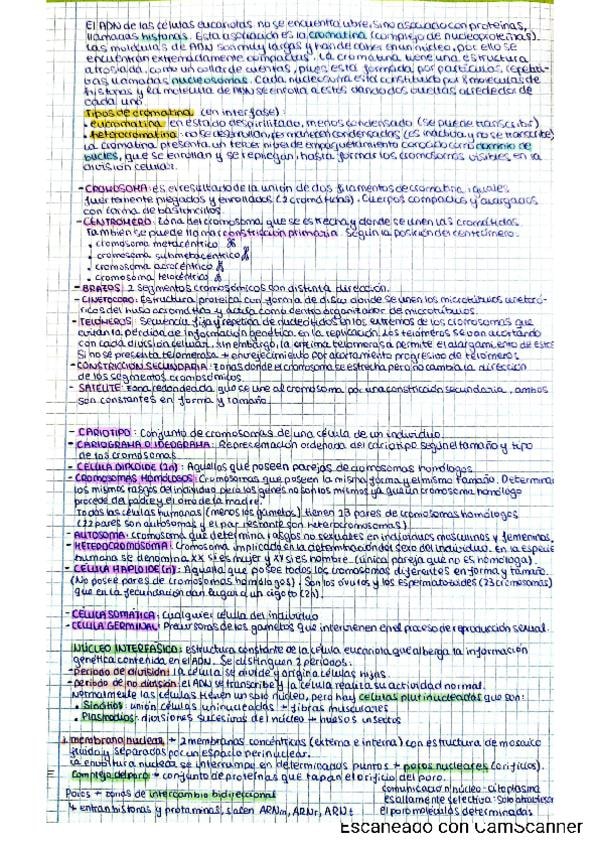 El ADN de las células eucariotas no se encuentra libre, sino asociado con proteínas,
llamadas histonas. Esta asociación es la cromatina (complejo de nucleoproteínas).
Las moléculas de ADN son muy largas y han de caber en un núcleo, por ello se
encuentran extremadamente compactas. La cromatina tiene una estructura
arrosariada, como un collar de cuentas, pues está formada por partículas repetiti-
vas llamadas nucleosomas. Cada nucleosoma está constituido por 8 moléculas de
histonas y la molécula de ADN se enrolla a estas dando dos vueltas alrededor de
cada uno.
Tipos de cromatina (en interfase):
· eucromatina: en estado desespirilizado, menos condensada (se puede transcribir)
· heterocromatina: no se desenrollan, permanecen condensadas (es inactiva y no se transcribe)
La cromatina presenta un tercer nivel de empaquetamiento conocido como dominio de
bucles, que se enrollan y se repliegan, hasta formar los cromosomas visibles en la
división celular.
- CROMOSOMA: es el resultado de la unión de dos filamentos de cromatina iguales
fuertemente plegados y enrollados (2 cromátidas). Cuerpos compactos y alargados
con forma de bastoncillos.
- CENTRÓMERO: zona del cromosoma que se estrecha y donde se unen las cromátidas.
También se puede llamar constricción primaria. Según la posición del centrómero:
· cromosoma metacéntrico
· cromosoma submetacéntrico
· cromosoma acrocéntrico
· cromosoma telocéntrico
- BRAZOS: 2 segmentos cromosómicos con distinta dirección.
- CINETOCORO: Estructura proteica con forma de disco donde se unen los microtúbulos
del huso acromático y actúa como centro organizador de microtúbulos.
- TELÓMEROS: Secuencia fija y repetida de nucleótidos en los extremos de los cromosomas que
evitan la pérdida de información genética en la replicación. Los telómeros se van acortando
con cada división celular. Sin embargo, la enzima telomerasa permite el alargamiento de estos
Si no se presenta telomerasa → envejecimiento por acortamiento progresivo de telómeros
- CONSTRICCIÓN SECUNDARIA: zonas donde el cromosoma se estrecha pero no cambia la dirección
de los segmentos cromosómicos.
- SATÉLITE: zona redondeada que se une al cromosoma por una constricción secundaria, ambos
son constantes en forma y tamaño.
- CARIOTIPO: Conjunto de cromosomas de una célula de un individuo
- CARIOGRAMA O IDEOGRAMA: Representación ordenada del cariotipo según el tamaño y tipo
de los cromosomas
- CÉLULA DIPLOIDE (2n): Aquellos que poseen parejas de cromosomas homólogos
- CROMOSOMAS HOMÓLOGOS: Cromosomas que poseen la misma forma y el mismo tamaño. Determinan
los mismos rasgos del individuo pero los genes no son los mismos ya que un cromosoma homólogo
procede del padre y el otro de la madre.
Todas las células humanas (menos los gametos) tienen 23 pares de cromosomas homólogos
(22 pares son autosomas y el par restante son heterocromosomas)
- AUTOSOMA: cromosoma que determina rasgos no sexuales en individuos masculinos y femeninos.
- HETEROCROMOSOMA: Cromosoma implicado en la determinación del sexo del individuo. En la especie
humana se denomina XX si es mujer y XY si es hombre. (única pareja que no es homóloga).
- CÉLULA HAPLOIDE (n): Aquella que posee todos los cromosomas diferentes en forma y tamaño.
(No posee pares de cromosomas homólogos). Son los óvulos y los espermatozoides (23 cromosomas)
que en la fecundación dan lugar a un cigoto (2n).
- CÉLULA SOMÁTICA: cualquier célula del individuo
- CÉLULA GERMINAL: Precursoras de los gametos que intervienen en el proceso de reproducción sexual.
NÚCLEO INTERFÁSICO: estructura constante de la célula eucariota que alberga la información
genética contenida en el ADN. Se distinguen 2 periodos.
- periodo de división: la célula se divide y origina células hijas.
- periodo de no división: el ADN se transcribe y la célula realiza su actividad normal.
Normalmente las células tienen un solo núcleo, pero hay células plurinucleadas que son:
· Sincitios: unión células uninucleadas → fibras musculares
· Plasmodios: divisiones sucesivas del núcleo → huevos insectos
1. membrana nuclear → 2 membranas concéntricas (externa e interna) con estructura de mosaico
fluido y separadas por un espacio perinuclear.
La envoltura nuclear se interrumpe en determinados puntos → poros nucleares (orificios).
Complejo del poro → conjunto de proteínas que tapan el orificio del poro.
Poros → zonas de intercambio bidireccional
↳ entran histonas y protaminas, salen ARNm, ARNr, ARNt
comunicación núcleo-citoplasma
es altamente selectiva: Solo atraviesan
el poro moléculas determinadas
Escaneado con CamScanner